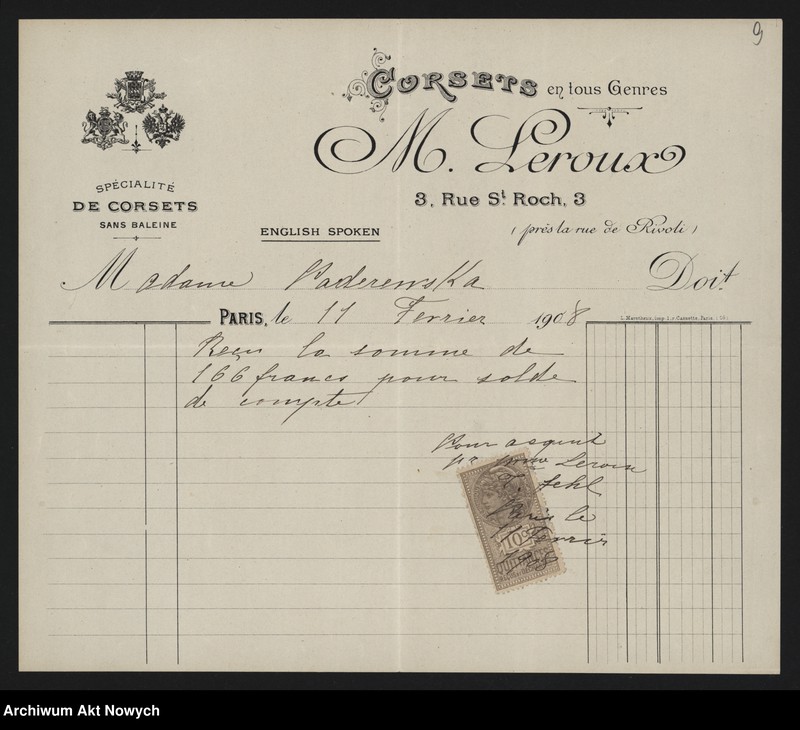 9
CORSETS en tous Genres
M. Leroux
3, Rue St. Roch, 3
(près la rue de Rivoli)
SPÉCIALITÉ
DE CORSETS
SANS BALEINE
ENGLISH SPOKEN
Madame Paderewska Doit
PARIS, le 11 Fevrier 1908
Reçu la somme de
166 francs pour solde
de compte
Pour acquit
Leroux
Paris le
11 Fevrier
1908
10c
Archiwum Akt Nowych